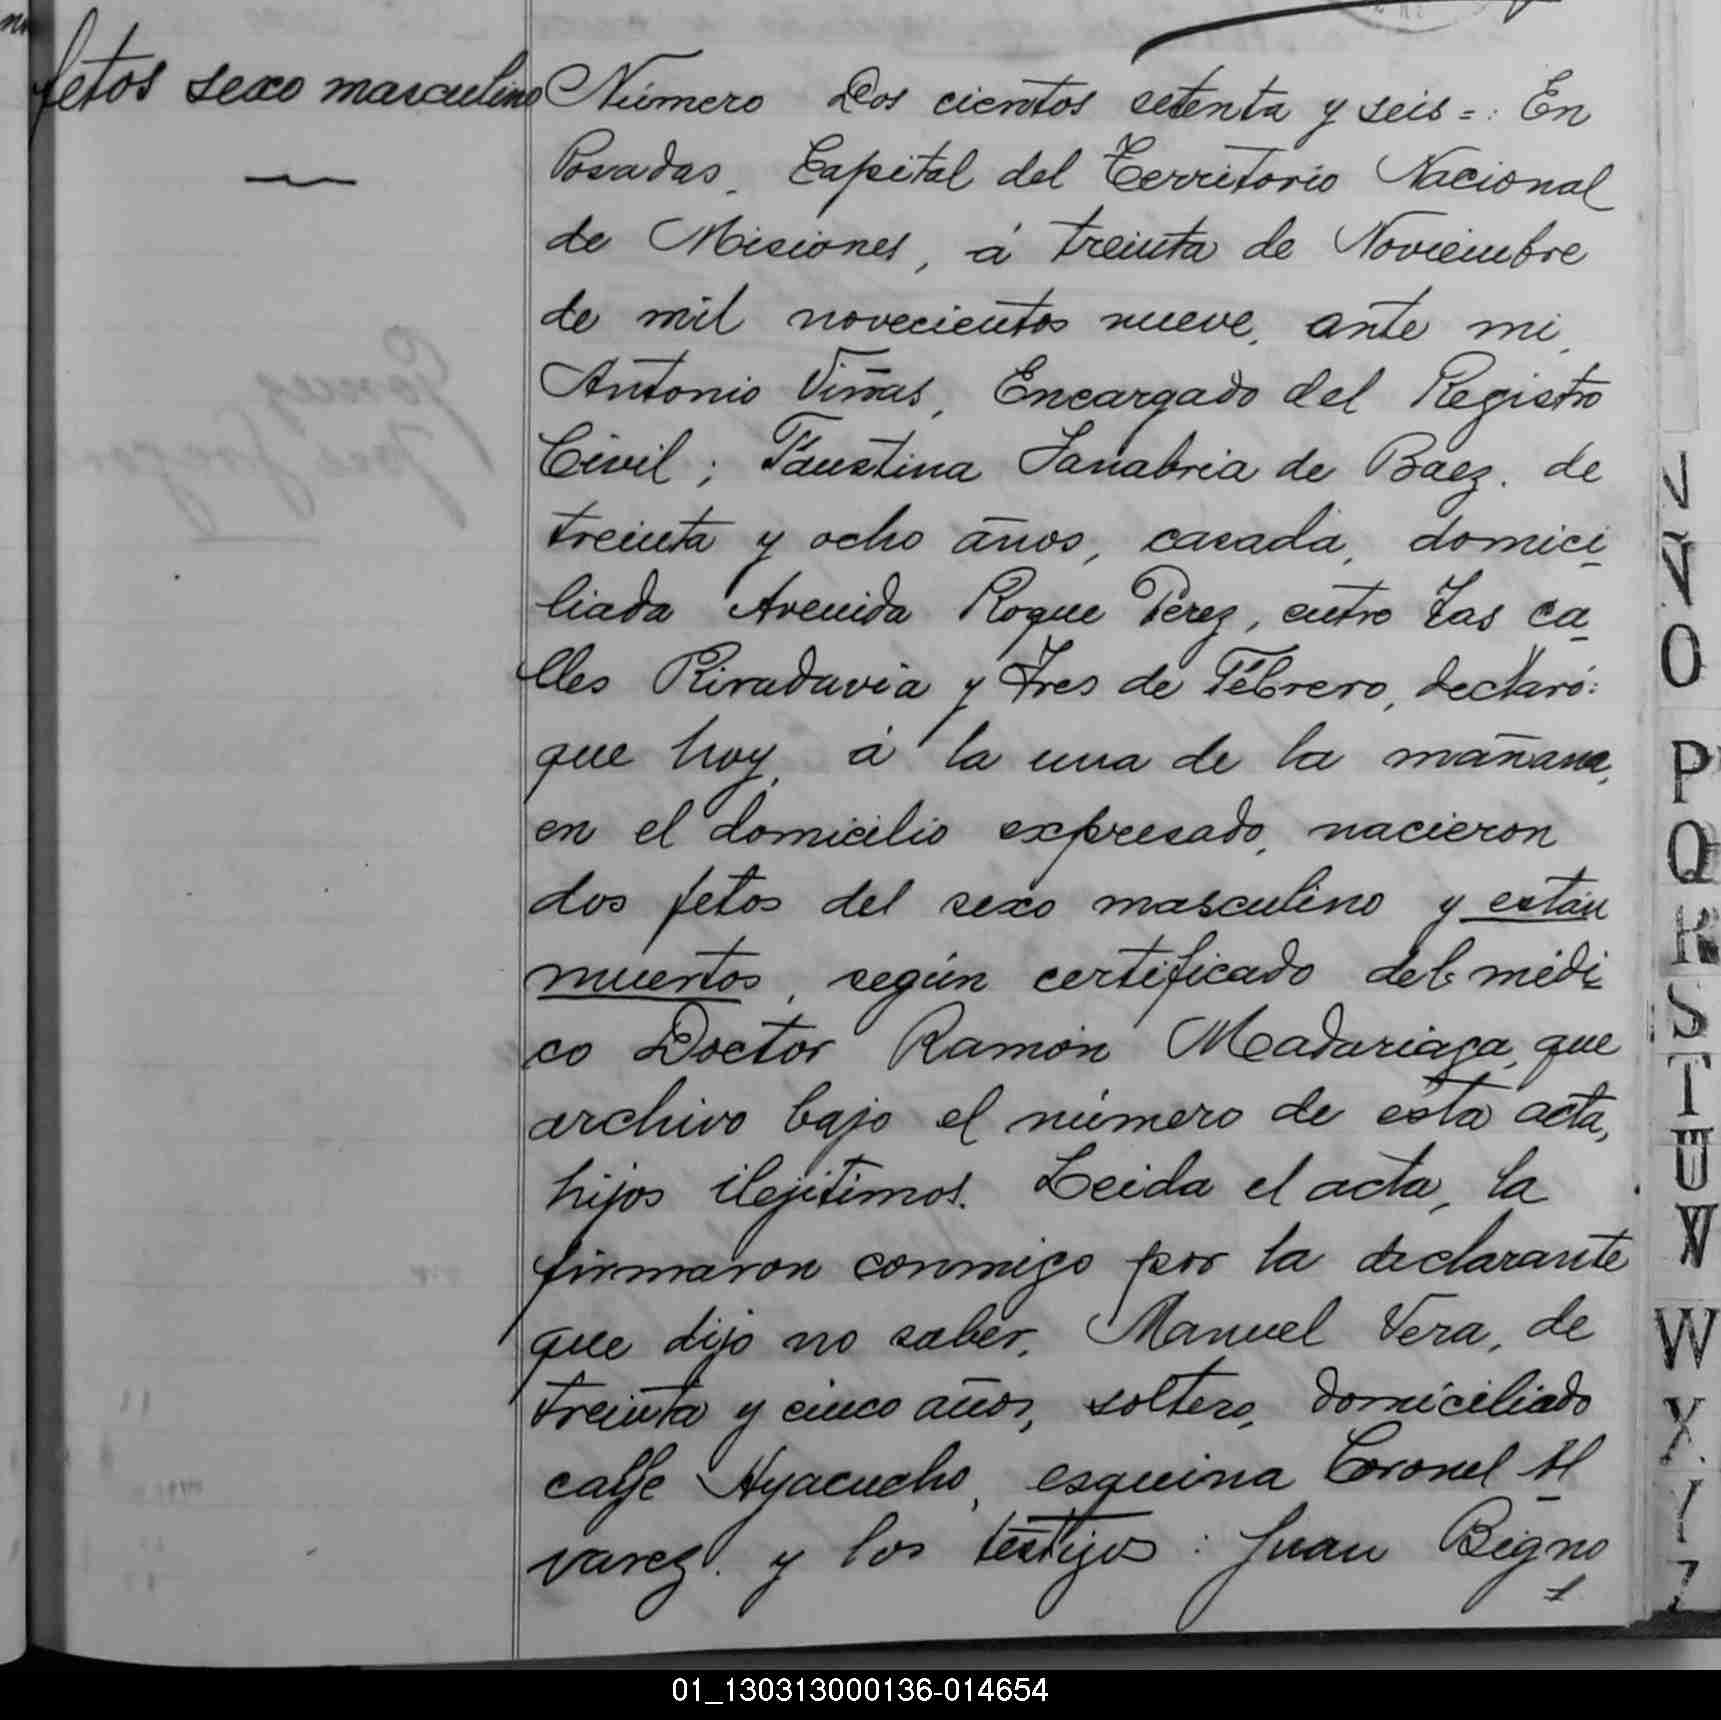 fetos sexo masculino
Número Dos cientos setenta y seis=: En
Posadas, Capital del Territorio Nacional
de Misiones, á treinta de Noviembre
de mil novecientos nueve, ante mi,
Antonio Viñas, Encargado del Registro
Civil; Faustina Sanabria de Baez, de
treinta y ocho años, casada, domici-
liada Avenida Roque Perez, entre las ca-
lles Rivadavia y Tres de Febrero, declaró:
que hoy, á la una de la mañana,
en el domicilio expresado, nacieron
dos fetos del sexo masculino y están
muertos, según certificado del médi-
co Doctor Ramón Madariaga, que
archivo bajo el número de esta acta,
hijos ilejitimos. Leida el acta, la
firmaron conmigo por la declarante
que dijo no saber, Manuel Vera, de
treinta y cinco años, soltero, domiciliado
calle Ayacucho, esquina Coronel Al-
varez. y los testigos: Juan Bigno
N
Ñ
O
P
Q
R
S
T
U
V
W
X
Y
Z
01_130313000136-014654